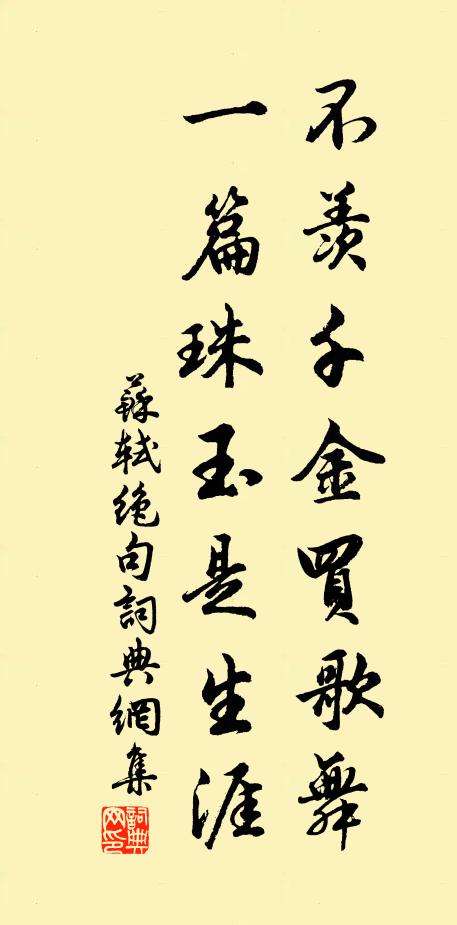 不羨千金買歌舞
一篇珠玉是生涯
蘇軾绝句詞典網集
詞典网印